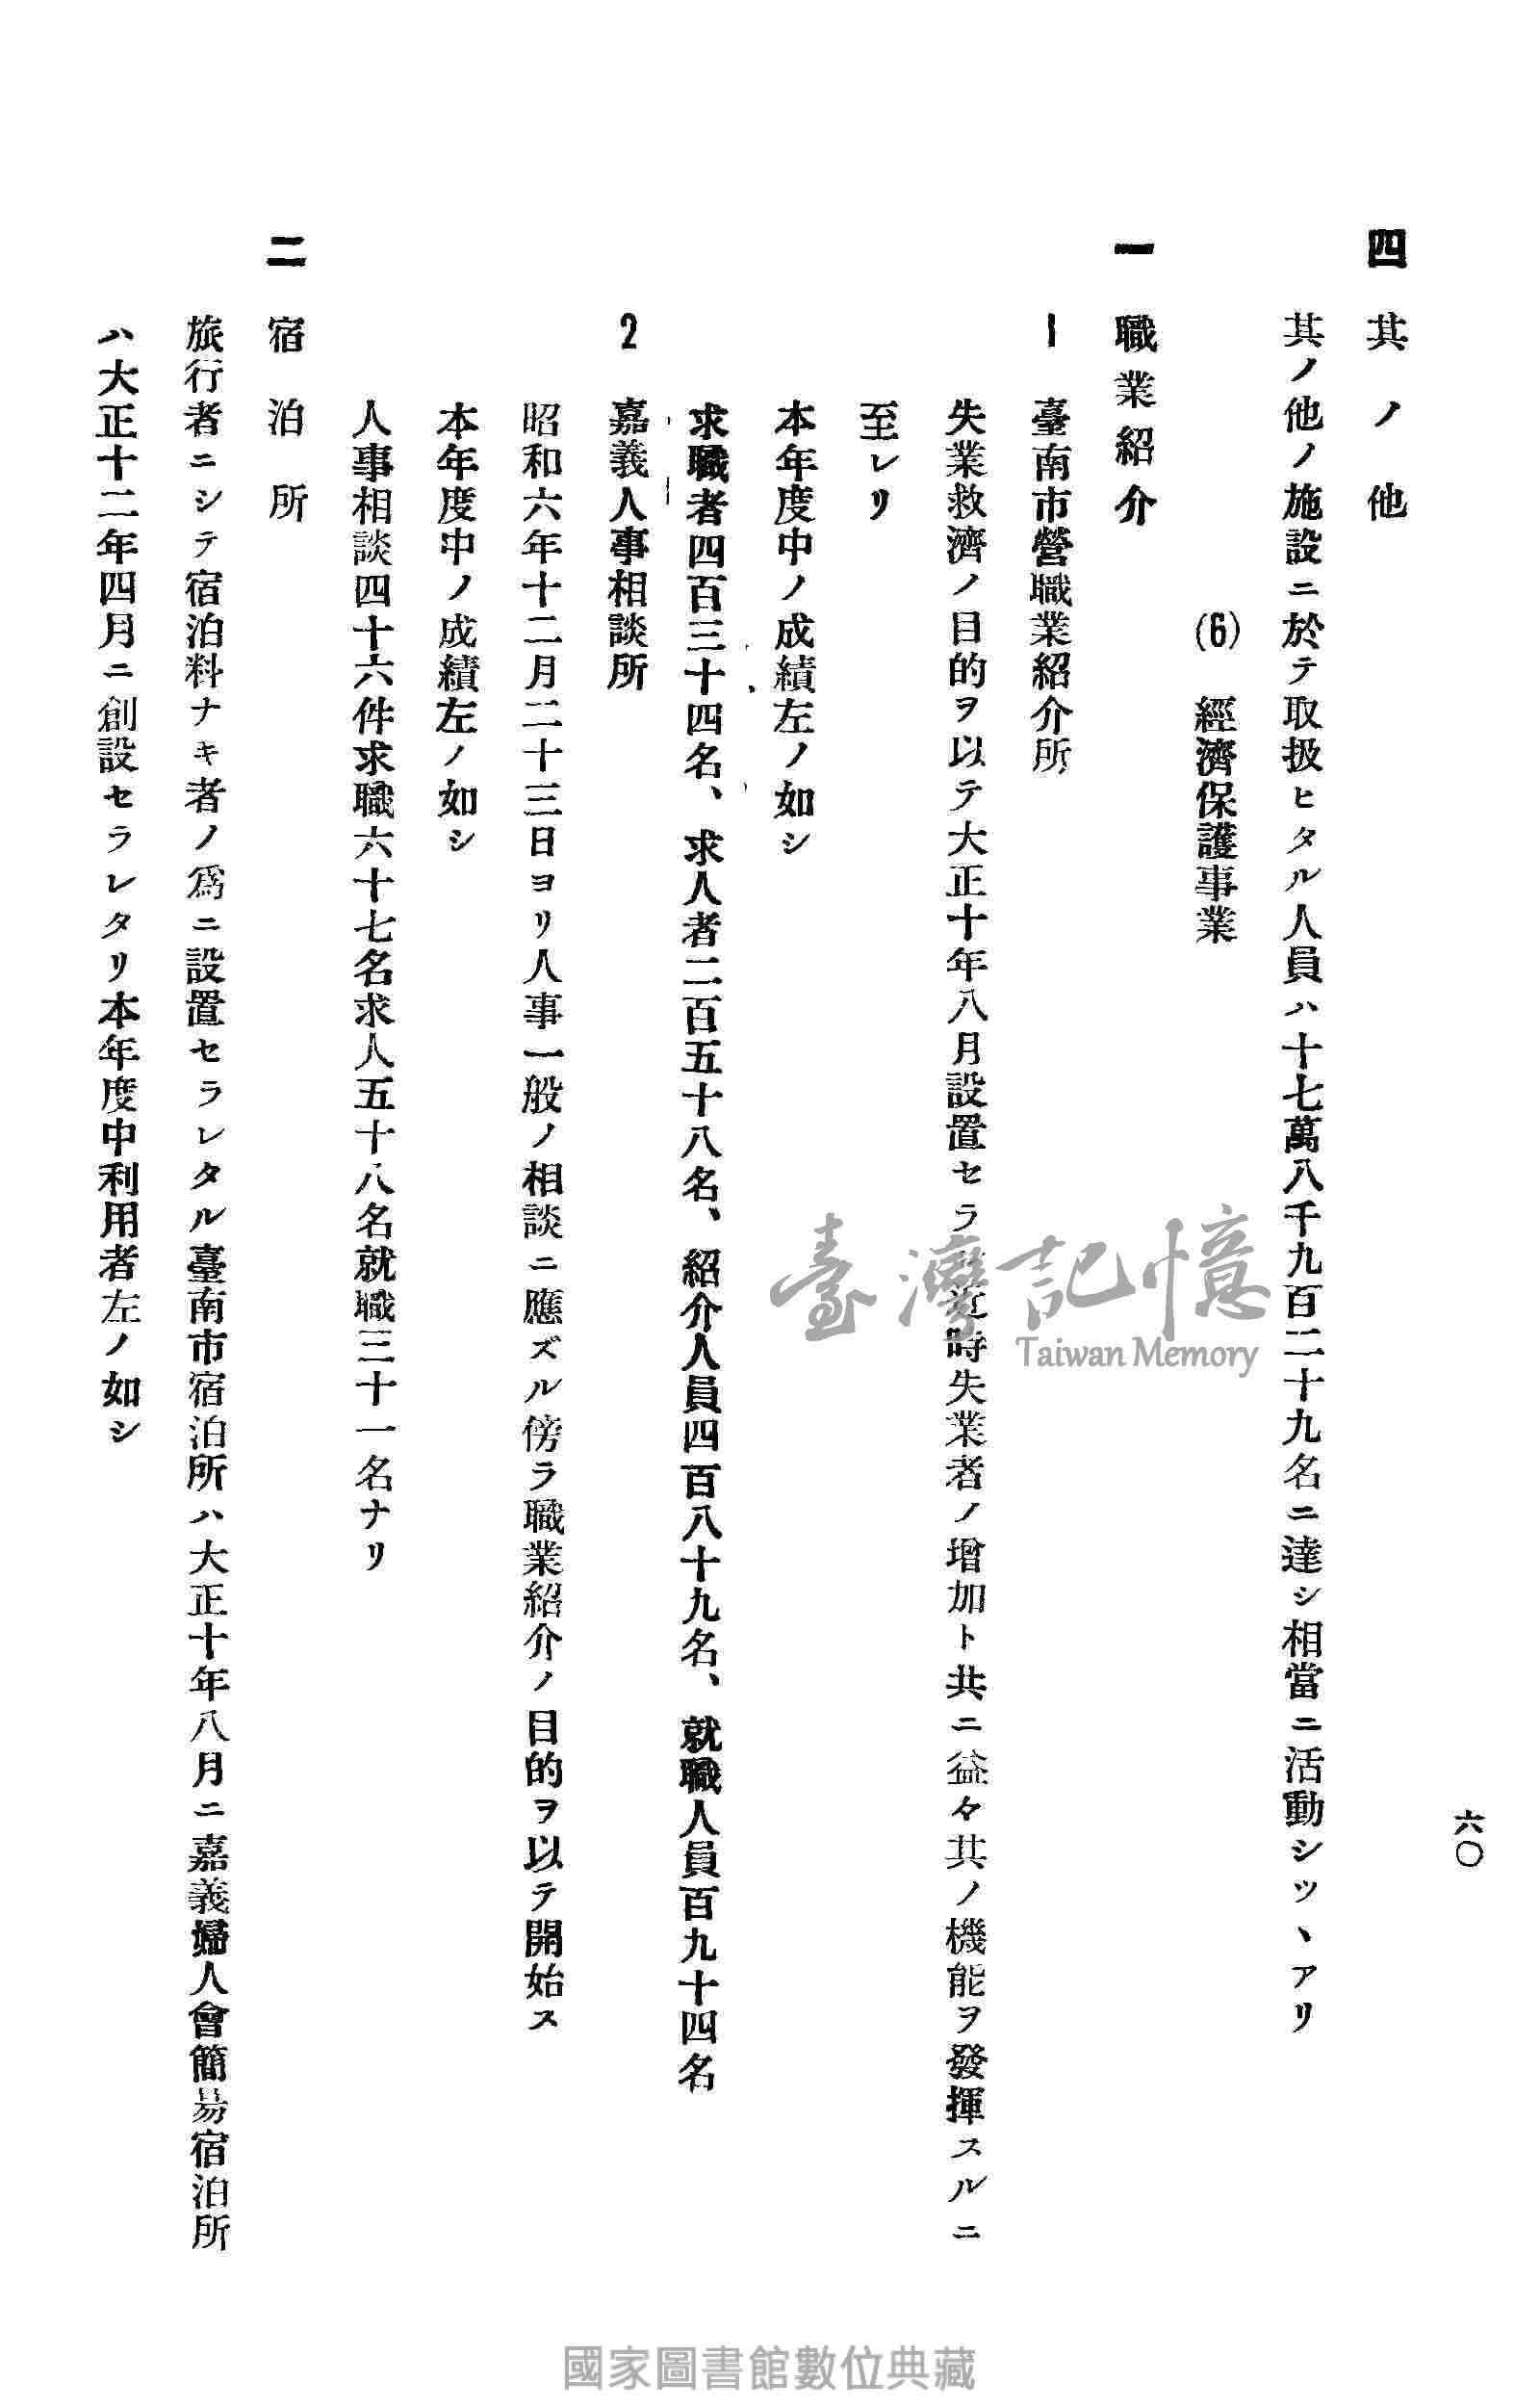 六〇
四 其ノ他
其ノ他ノ施設ニ於テ取扱ヒタル人員ハ十七萬八千九百二十九名ニ達シ相當ニ活動シツヽアリ
(6) 經濟保護事業
一 職業紹介
1 臺南市營職業紹介所
失業救濟ノ目的ヲ以テ大正十年八月設置セラ近時失業者ノ增加ト共ニ益々其ノ機能ヲ發揮スルニ
至レリ
本年度中ノ成績左ノ如シ
求職者四百三十四名、求人者二百五十八名、紹介人員四百八十九名、就職人員百九十四名
2 嘉義人事相談所
昭和六年十二月二十三日ヨリ人事一般ノ相談ニ應ズル傍ラ職業紹介ノ目的ヲ以テ開始ス
本年度中ノ成績左ノ如シ
人事相談四十六件求職六十七名求人五十八名就職三十一名ナリ
二 宿泊所
旅行者ニシテ宿泊料ナキ者ノ爲ニ設置セラレタル臺南市宿泊所ハ大正十年八月ニ嘉義婦人會簡易宿泊所
ハ大正十二年四月ニ創設セラレタリ本年度中利用者左ノ如シ
臺灣記憶
Taiwan Memory
國家圖書館數位典藏